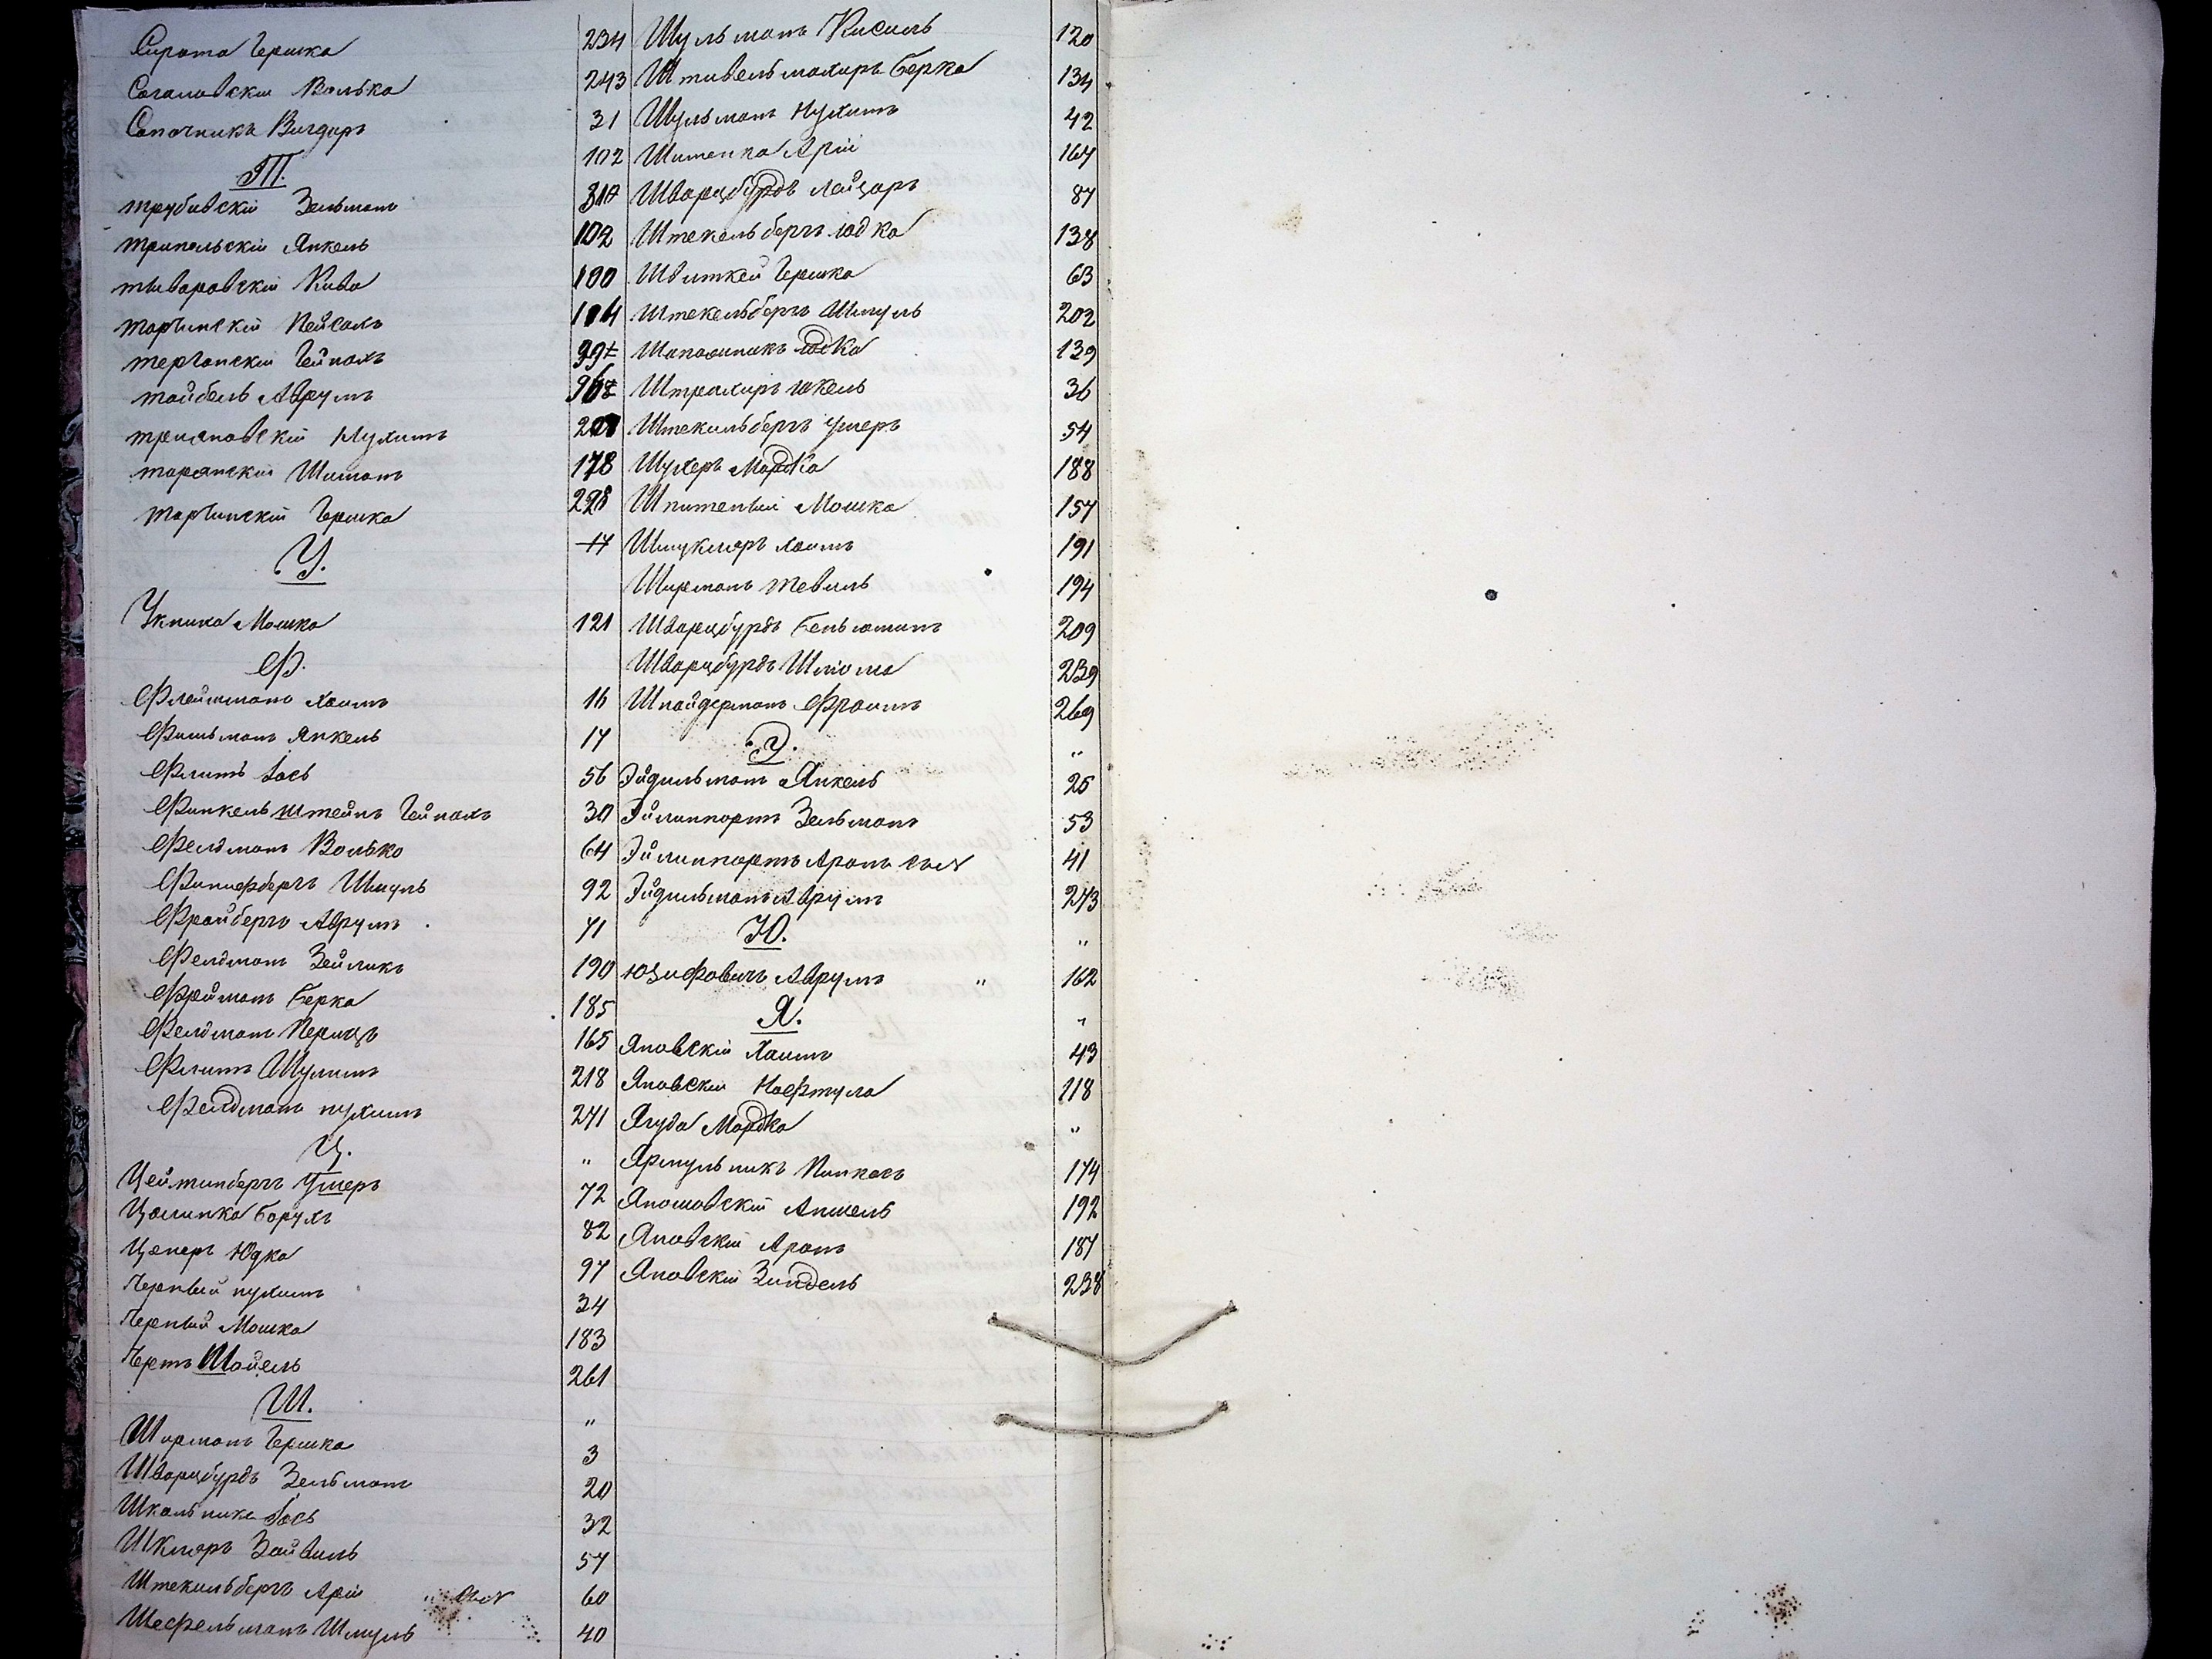 Сирота Гершко 234
Согаловскій Волько 243
Сапочникъ Вигдоръ 31
Т. 102
Трубивскій Зельманъ 310
Трипольскій Янкель 102
Тываровскій Кива 100
Торчинскій Пейсахъ 104
Терчанскій Гейнохъ 99
Тойбель Аврумъ
Трияновскій Нухимъ
Торанскій Шимонъ 178
Торчинскій Гершко 228
У. 17
Укника Мошко 121
Ф.
Флейшманъ Хаимъ 16
Фишманъ Янкель 17
Флитъ Іосъ 56
Финкельштейнъ Гейнохъ 30
Фелдманъ Волько 64
Финифбергъ Шмуль 92
Фрайбергъ Аврумъ 71
Фелдманъ Зейликъ 190
Фрейманъ Берко 185
Фелдманъ Перицъ 165
Флитъ Шулимъ 218
Фелдманъ Нухимъ 241
Ц. "
Цейтинбергъ Ушеръ 72
Цолинко Борухъ 82
Цоперъ Юдко 97
Черный Нухимъ 34
Черный Мошко 183
Чертъ Шойель 261
Ш. "
Шорманъ Гершко 3
Шварцбурдъ Зельманъ 20
Школьникъ Іосъ 32
Шкляръ Зайвиль 57
Штекильбергъ Арій 60
Шефельманъ Шмуль 40
Шульманъ Кисиль 120
Штивельмахиръ Берко 134
Шульманъ Нухимъ 42
Шитенко Арій 164
Шварцбурдъ Лейзоръ 87
Штекельбергъ Юдко 138
Швиткей Гершко 63
Штекельбергъ Шмуль 202
Шапошникъ Юдко 139
Штрахиръ Юкель 36
Штекильбергъ Ушеръ 54
Шухеръ Мордко 188
Шпитеный Мошко 157
Шмукляръ Хаимъ 191
Ширманъ Тевиль 194
Шварцбурдъ Беньюминъ 209
Шварцбурдъ Шлиома 239
Шнайдерманъ Фроимъ 269
Э. "
Эйдильманъ Янкель 25
Эйлиппортъ Зельманъ 53
Эйлиппортъ Аронъ 41
Эйдильманъ Аврумъ 243
Ю. "
Юзифовичъ Аврумъ " 162
Я. "
Яновскій Хаимъ 43
Яновскій Нафтула 118
Ягуда Мордко "
Ярмульникъ Пинкасъ 174
Яношовскій Аншель 192
Яновскій Аронъ 187
Яновскій Зиндель 238